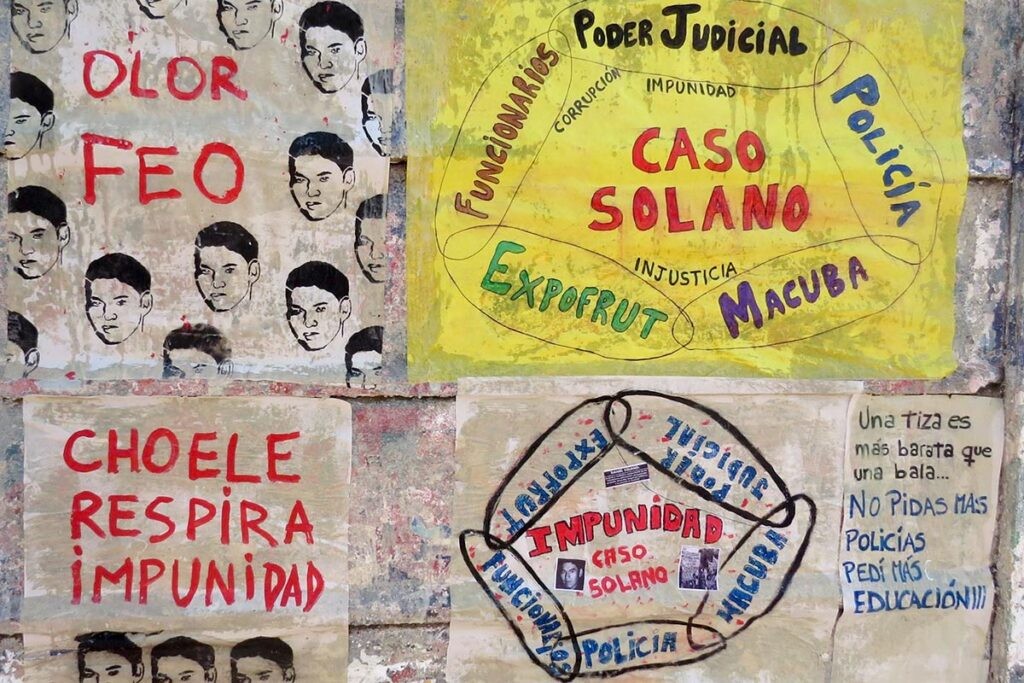 OLOR
FEO
PODER JUDICIAL
FUNCIONARIOS
CORRUPCIÓN
IMPUNIDAD
POLICÍA
CASO
SOLANO
INJUSTICIA
EXPOFRUT
MACUBA
CHOELE
RESPIRA
iMPUNiDAD
EXPOFRUT
PODER
JUDICIAL
IMPUNiDAD
CASO
SOLANO
FUNCIONARIOS
MACUBA
POLICIA
Una tiza es
más barata que
una bala...
NO PIDAS MAS
POLICÍAS
PEDÍ MÁS
EDUCACIÓN!!!